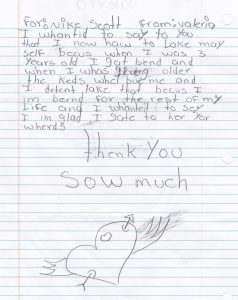 for: Nike Scott From: valeria
I whantid to say to you
that I now how to Lake may
self becus when I was 3
years old I got bend and
when I whas older
the keds whet bue me and
I detent Lake that becus I
im bernd for the rest of my
Life and I whantid to say
I im glad I gate to her yor
wherds
thenk-you
sow much